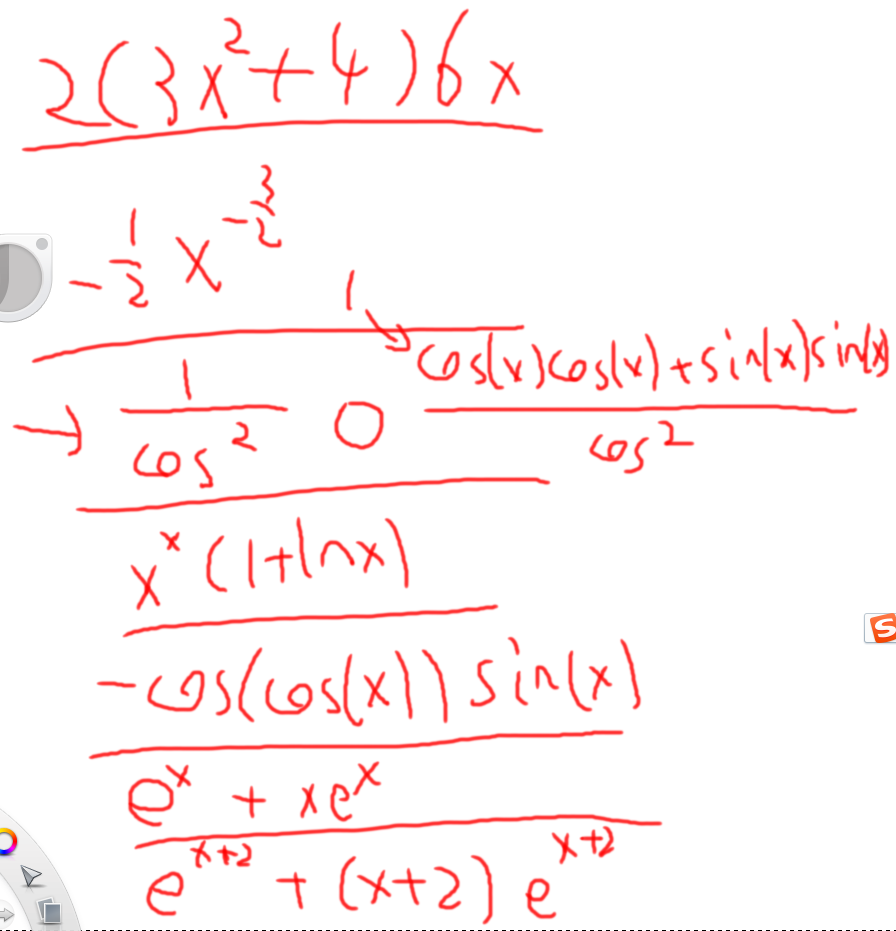 2(3x²+4)6x
-1/2 x^(-3/2)
1
→ 1/cos² O cos(x)cos(x)+sin(x)sin(x)/cos²
x^x (1+lnx)
-cos(cos(x)) sin(x)
e^x + xe^x
e^(x+2) + (x+2) e^(x+2)